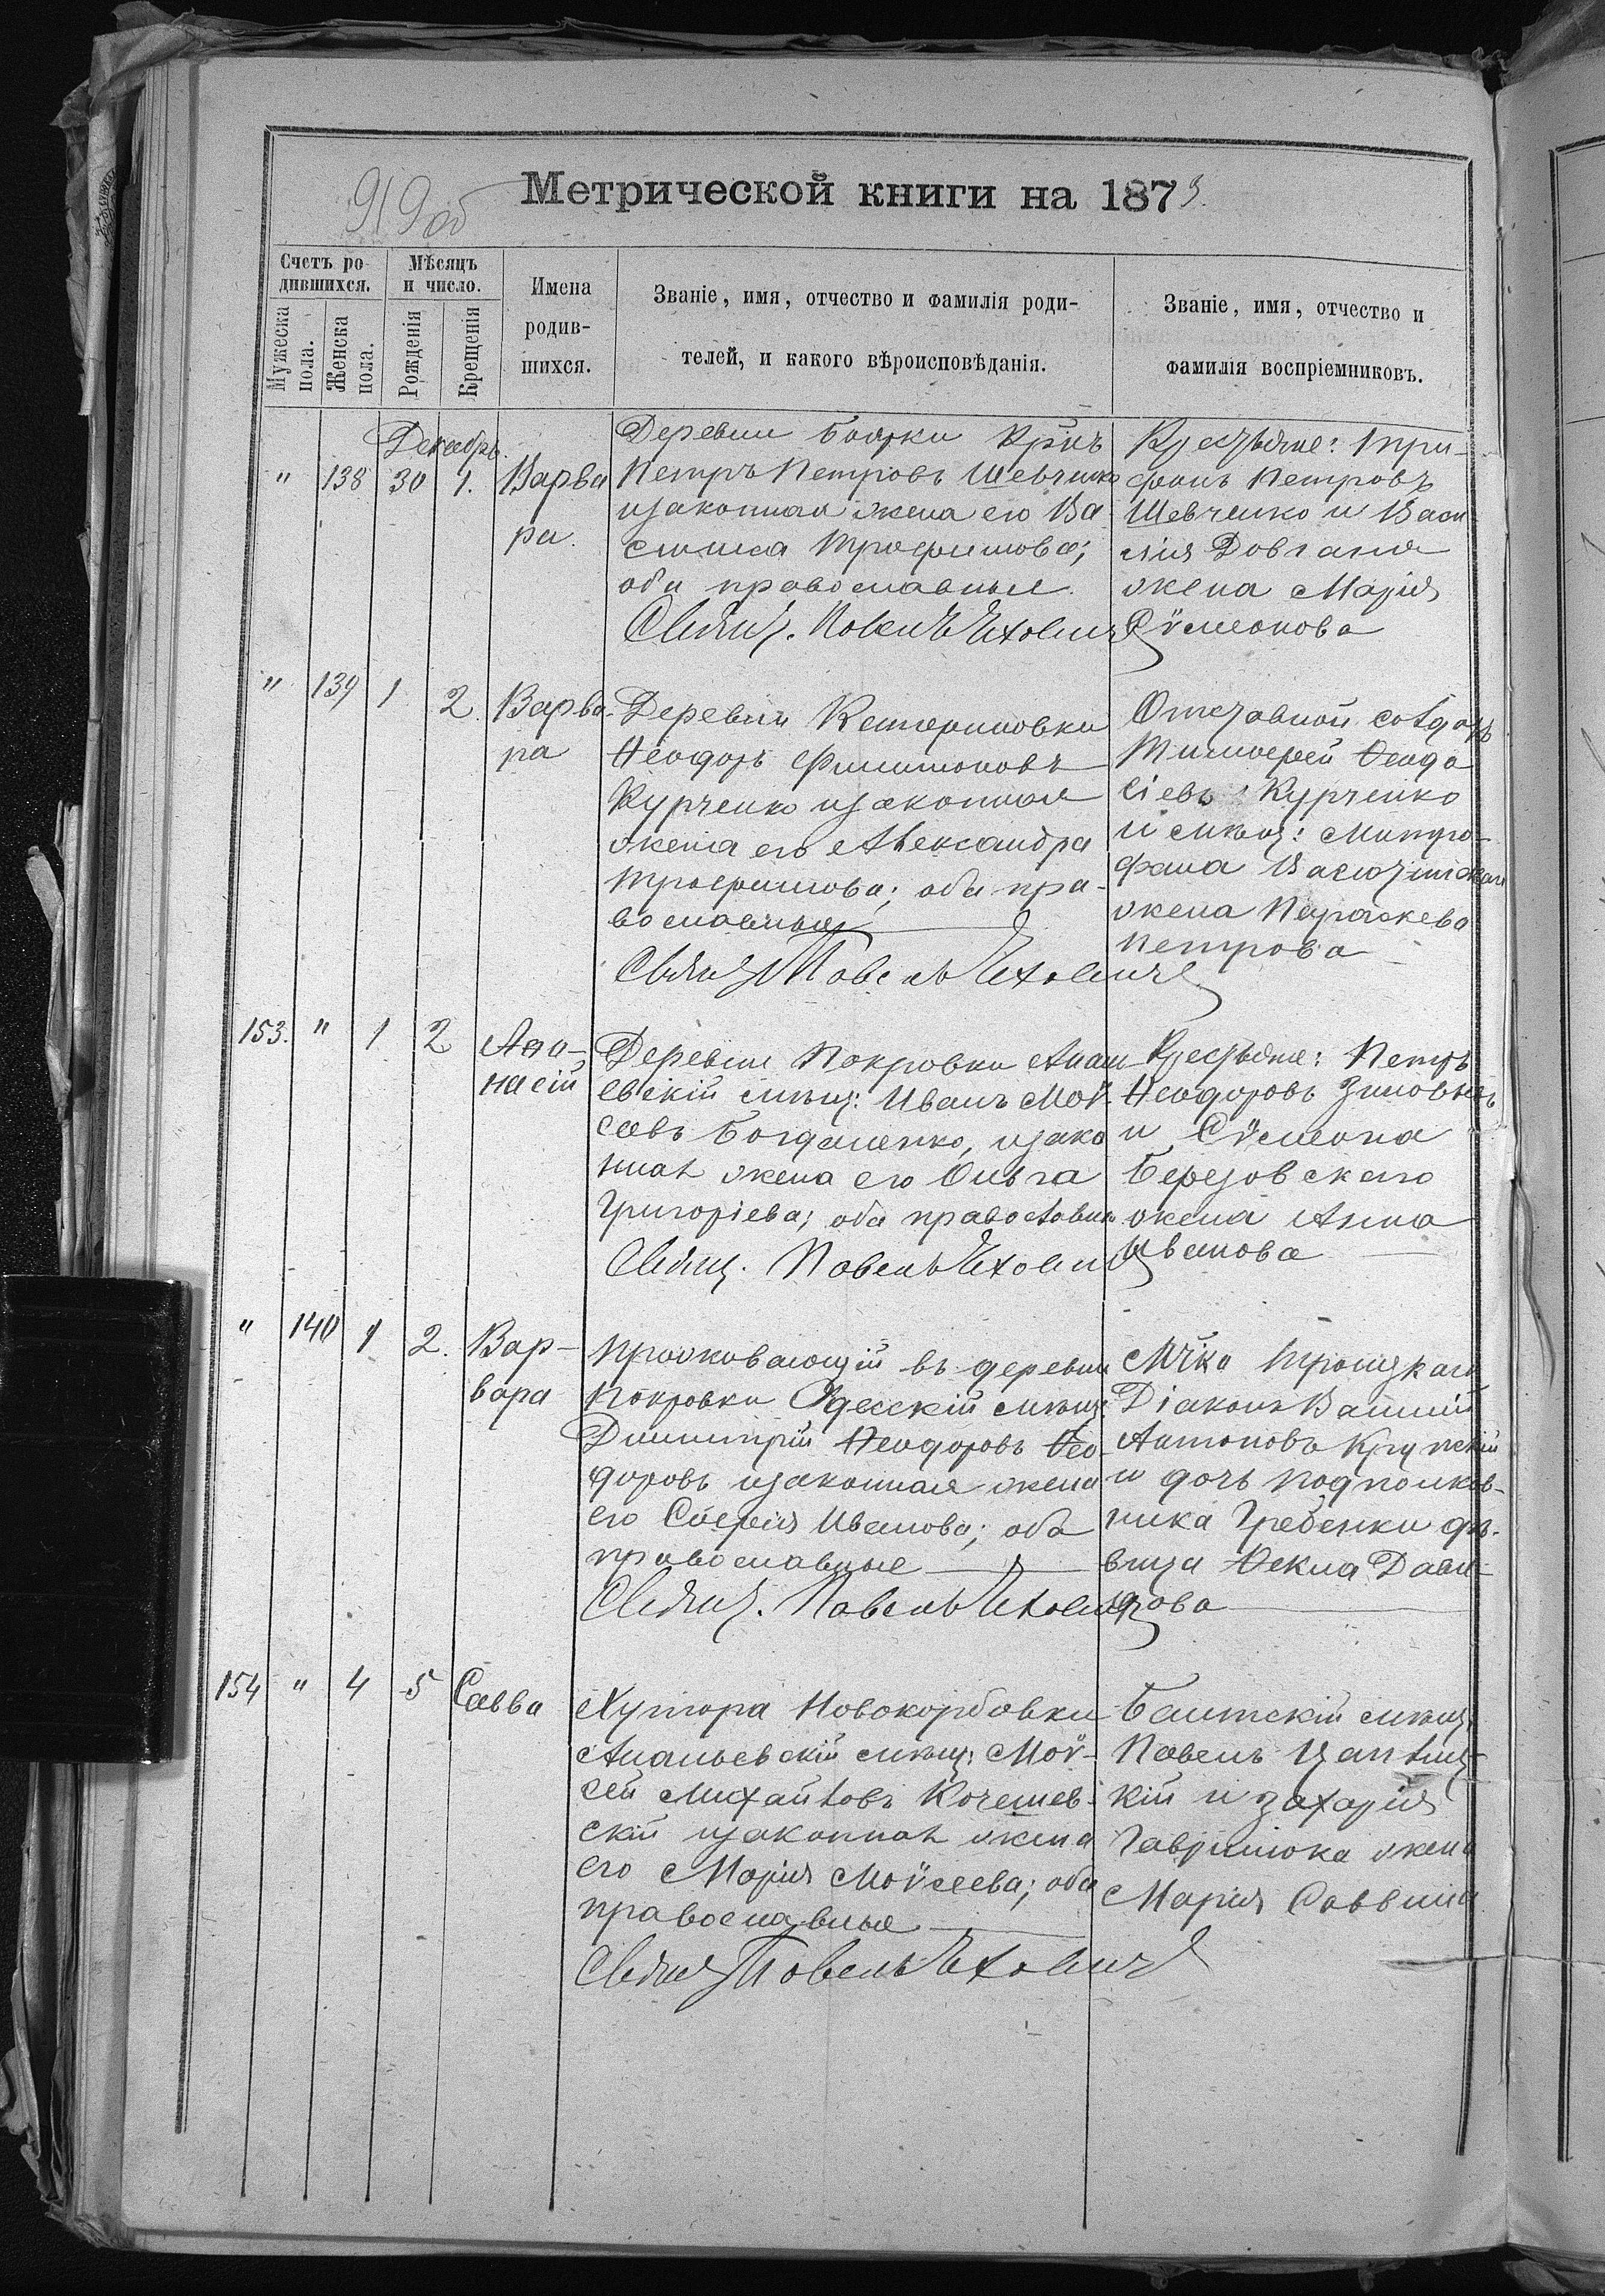 919об
Метрической книги на 1873.
Счетъ ро-
дившихся.
Мѣсяцъ
и число.
Мужеска
пола.
Женска
пола.
Рожденія
Крещенія
Имена
родив-
шихся.
Званіе, имя, отчество и фамилія роди-
телей, и какого вѣроисповѣданія.
Званіе, имя, отчество и
фамилія воспріемниковъ.
Декабрь.
" 138 30 1. Варва
ра.
Деревни Боярки Крнъ
Петръ Петровъ Шевченко
изаконная жена его Ва
силиса Трофимова;
оба православные.
Свящ. Павелъ Яхович
Крестьяне: Три-
фонъ Петровъ
Шевченко и Васи
лія Довганя
жена Марія
Сѵмеонова
" 139 1 2. Варва-
ра
Деревни Катериновки
Ѳеодоръ Филимоновъ
Курченко изаконная
жена его Александра
Трофимова; оба пра-
вославные
Свящ Павелъ Яхович
Отставной солдатъ
Тимофей Ѳеодо
сіевъ Курченко
и мѣщ: Митро-
фана
жена Параскева
Петрова
153. " 1 2 Аѳа-
насій
Деревни Покровки Анань
евскій мѣщ: Иванъ Моѵ-
сеевъ Богданенко, изако
нная жена его Ольга
Григоріева; оба православн
Свящ. Павелъ Яхович
Крестьяне: Петръ
Ѳеодоровъ Зиновьевъ
и Сѵмеона
Березовскаго
жена Анна
Иванова
" 140 1 2. Вар-
вара
Проживающій въ деревни
Покровки Одесскій мѣщ:
Димитрій Ѳеодоровъ Ѳео-
доровъ изаконная жена
его Софія Иванова; оба
православные
Свящ. Павелъ Яхович
Мѣчка Троицкаго
Діаконъ Василій
Антоновъ Крупскій
и дочь подполков-
ника Гребенки дѣ-
вица Ѳекла Давы-
дова
154 " 4 5 Савва
Хутора Новокорбовки
Ананьевскій мѣщ: Моѵ-
сей Михайловъ Кочешев-
скій изаконная жена
его Марія Моѵсеева; оба
православные
Свящ Павелъ Яхович
Балтскій мѣщ:
Павелъ
кій и Захарія
Гаврилюка жена
Марія Саввина